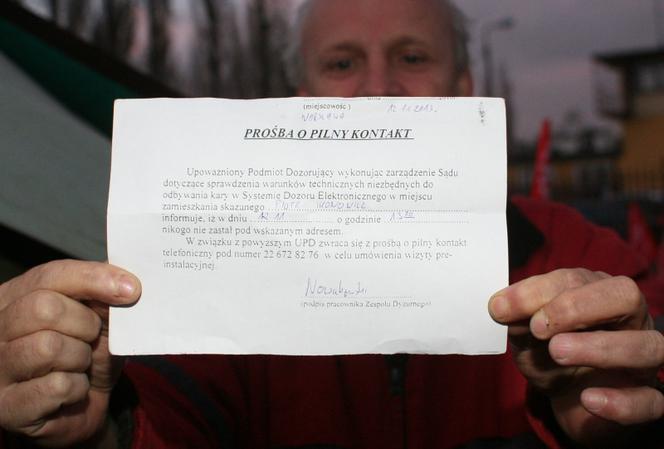 (miejscowość)
WARSZAWA 12.11.2013.
PROŚBA O PILNY KONTAKT
Upoważniony Podmiot Dozorujący wykonując zarządzenie Sądu
dotyczące sprawdzenia warunków technicznych niezbędnych do
odbywania kary w Systemie Dozoru Elektronicznego w miejscu
zamieszkania skazanego PIOTR IKONOWICZ
informuje, iż w dniu 12.11 o godzinie 13
nikogo nie zastał pod wskazanym adresem.
W związku z powyższym UPD zwraca się z prośbą o pilny kontakt
telefoniczny pod numer 22 672 82 76 w celu umówienia wizyty pre-
instalacyjnej.
(podpis pracownika Zespołu Dyżurnego)